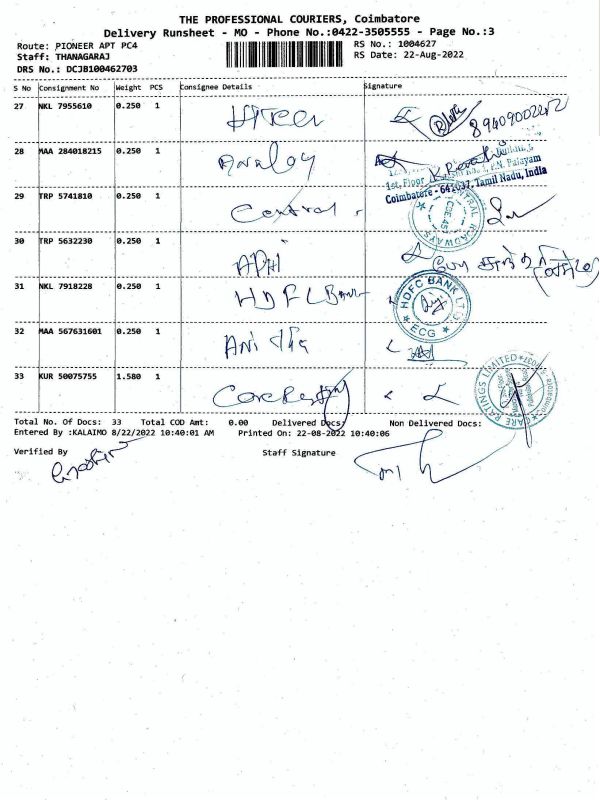 THE PROFESSIONAL COURIERS, Coimbatore
Delivery Runsheet - MO - Phone No.:0422-3505555 - Page No.:3
Route: PIONEER APT PC4 RS No.: 1004627
Staff: THANAGARAJ RS Date: 22-Aug-2022
DRS No.: DCJB100462703
S No Consignment No Weight PCS Consignee Details Signature
27 NKL 7955610 0.250 1
28 MAA 284018215 0.250 1 Analogy
1st, Floor P.N. Palayam
Coimbatore - 641037, Tamil Nadu, India
29 TRP 5741810 0.250 1 Central
CENTRAL ROADWAYS
30 TRP 5632230 0.250 1
31 NKL 7918228 0.250 1 HDFC Bank
HDFC BANK LTD
ECG
32 MAA 567631601 0.250 1 Anitha
33 KUR 50075755 1.580 1
CARE RATINGS LIMITED
Total No. Of Docs: 33 Total COD Amt: 0.00 Delivered Docs: Non Delivered Docs:
Entered By :KALAIMO 8/22/2022 10:40:01 AM Printed On: 22-08-2022 10:40:06
Verified By Staff Signature